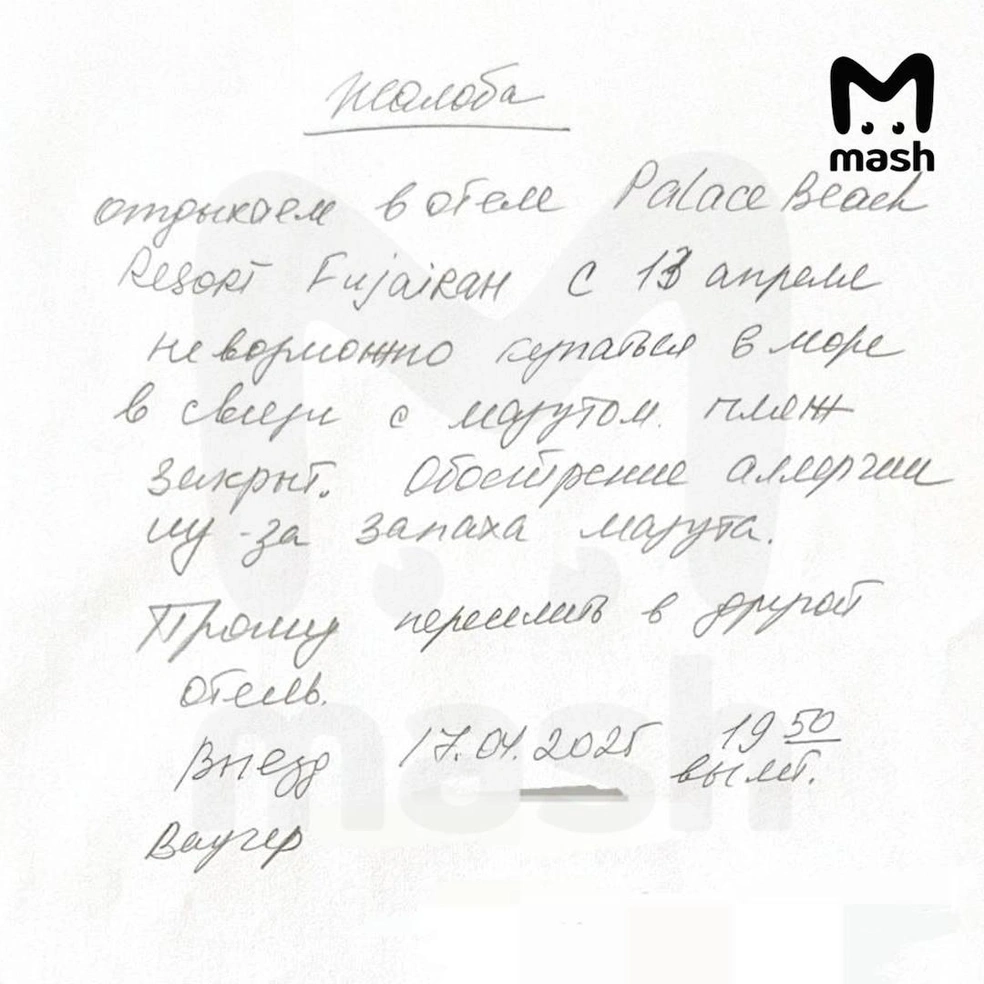 mash
Жалоба
отдыхаем в отеле Palace Beach
Resort Fujairah с 13 апреля
невозможно купаться в море
в связи с мазутом. пляж
закрыт. Обострение аллергии
из-за запаха мазута.
Прошу переселить в другой
отель.
Выезд 17.04.2025 19 50
вылет.
Ваучер
mash